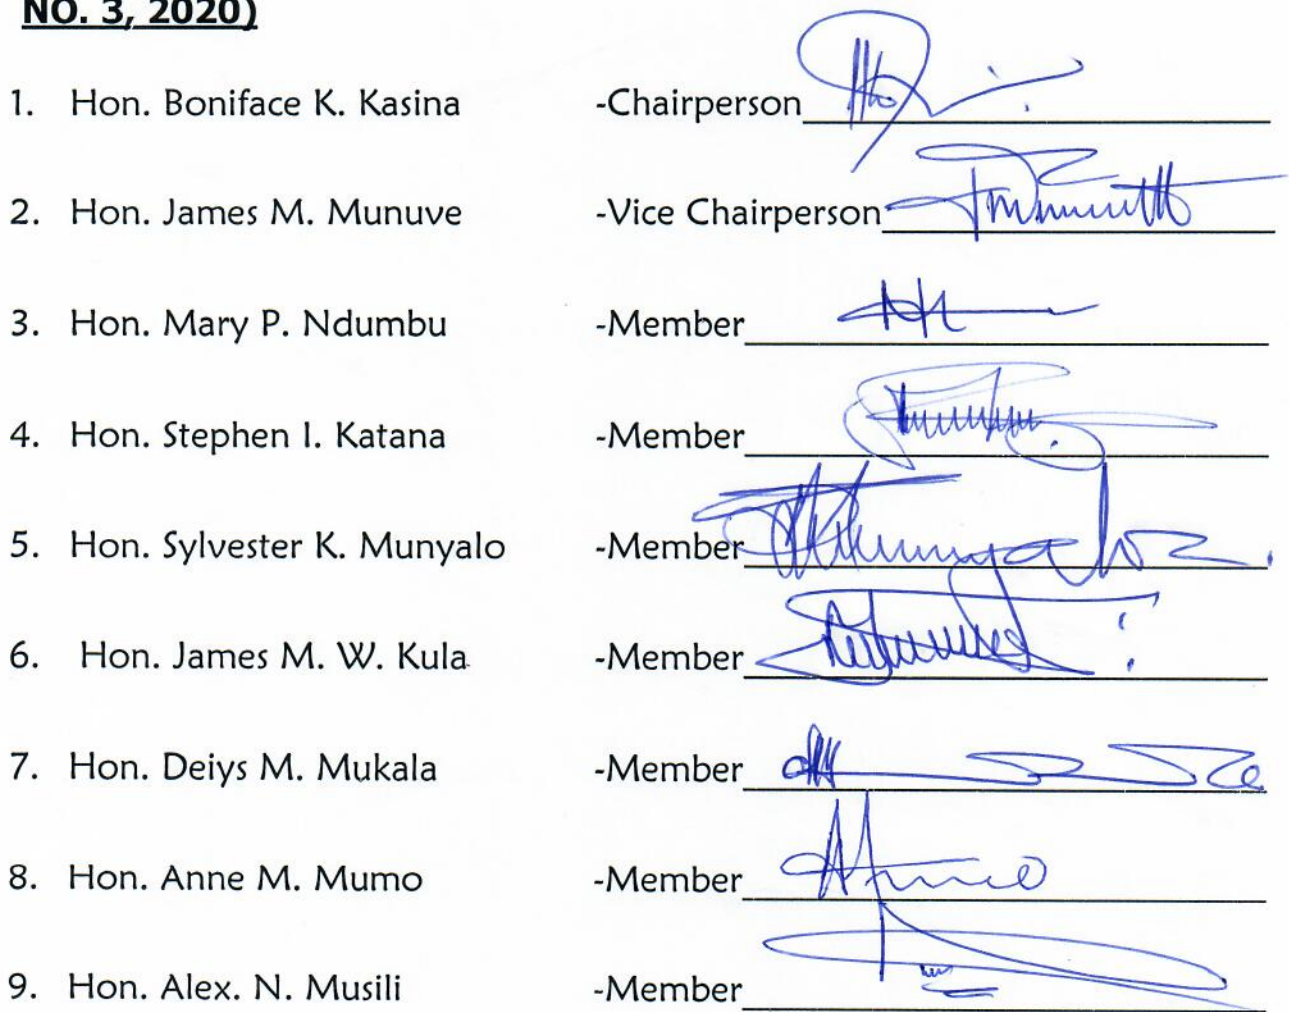 NO. 3, 2020)
1. Hon. Boniface K. Kasina -Chairperson
2. Hon. James M. Munuve -Vice Chairperson
3. Hon. Mary P. Ndumbu -Member
4. Hon. Stephen I. Katana -Member
5. Hon. Sylvester K. Munyalo -Member
6. Hon. James M. W. Kula -Member
7. Hon. Deiys M. Mukala -Member
8. Hon. Anne M. Mumo -Member
9. Hon. Alex. N. Musili -Member